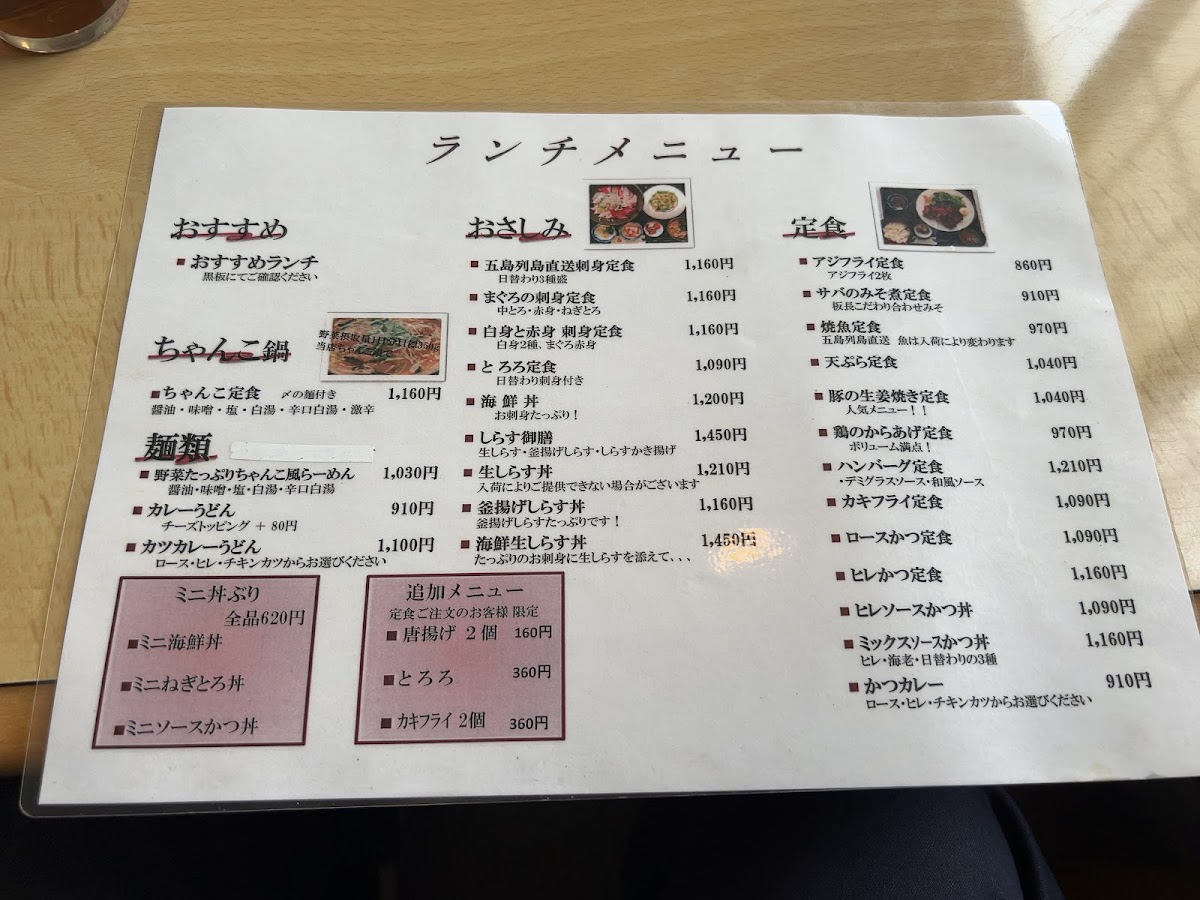 ランチメニュー
おすすめ
■おすすめランチ
黒板にてご確認ください
ちゃんこ鍋
■ちゃんこ定食 〆の麺付き 1,160円
醤油・味噌・塩・白湯・辛口白湯・激辛
麺類
■野菜たっぷりちゃんこ風らーめん 1,030円
醤油・味噌・塩・白湯・辛口白湯
■カレーうどん 910円
チーズトッピング + 80円
■カツカレーうどん 1,100円
ロース・ヒレ・チキンカツからお選びください
ミニ丼ぶり
全品620円
■ミニ海鮮丼
■ミニねぎとろ丼
■ミニソースかつ丼
追加メニュー
定食ご注文のお客様 限定
■唐揚げ 2個 160円
■とろろ 360円
■カキフライ 2個 360円
おさしみ
■五島列島直送刺身定食 1,160円
日替わり3種盛
■まぐろの刺身定食 1,160円
中とろ・赤身・ねぎとろ
■白身と赤身 刺身定食 1,160円
白身2種、まぐろ赤身
■とろろ定食 1,090円
日替わり刺身付き
■海鮮丼 1,200円
お刺身たっぷり!
■しらす御膳 1,450円
生しらす・釜揚げしらす・しらすかき揚げ
■生しらす丼 1,210円
入荷によりご提供できない場合がございます
■釜揚げしらす丼 1,160円
釜揚げしらすたっぷりです!
■海鮮生しらす丼 1,450円
たっぷりのお刺身に生しらすを添えて、、、
定食
■アジフライ定食 860円
アジフライ2枚
■サバのみそ煮定食 910円
板長こだわり合わせみそ
■焼魚定食 970円
五島列島直送 魚は入荷により変わります
■天ぷら定食 1,040円
■豚の生姜焼き定食 1,040円
人気メニュー!!
■鶏のからあげ定食 970円
ボリューム満点!
■ハンバーグ定食 1,210円
・デミグラスソース・和風ソース
■カキフライ定食 1,090円
■ロースかつ定食 1,090円
■ヒレかつ定食 1,160円
■ヒレソースかつ丼 1,090円
■ミックスソースかつ丼 1,160円
ヒレ・海老・日替わりの3種
■かつカレー 910円
ロース・ヒレ・チキンカツからお選びください